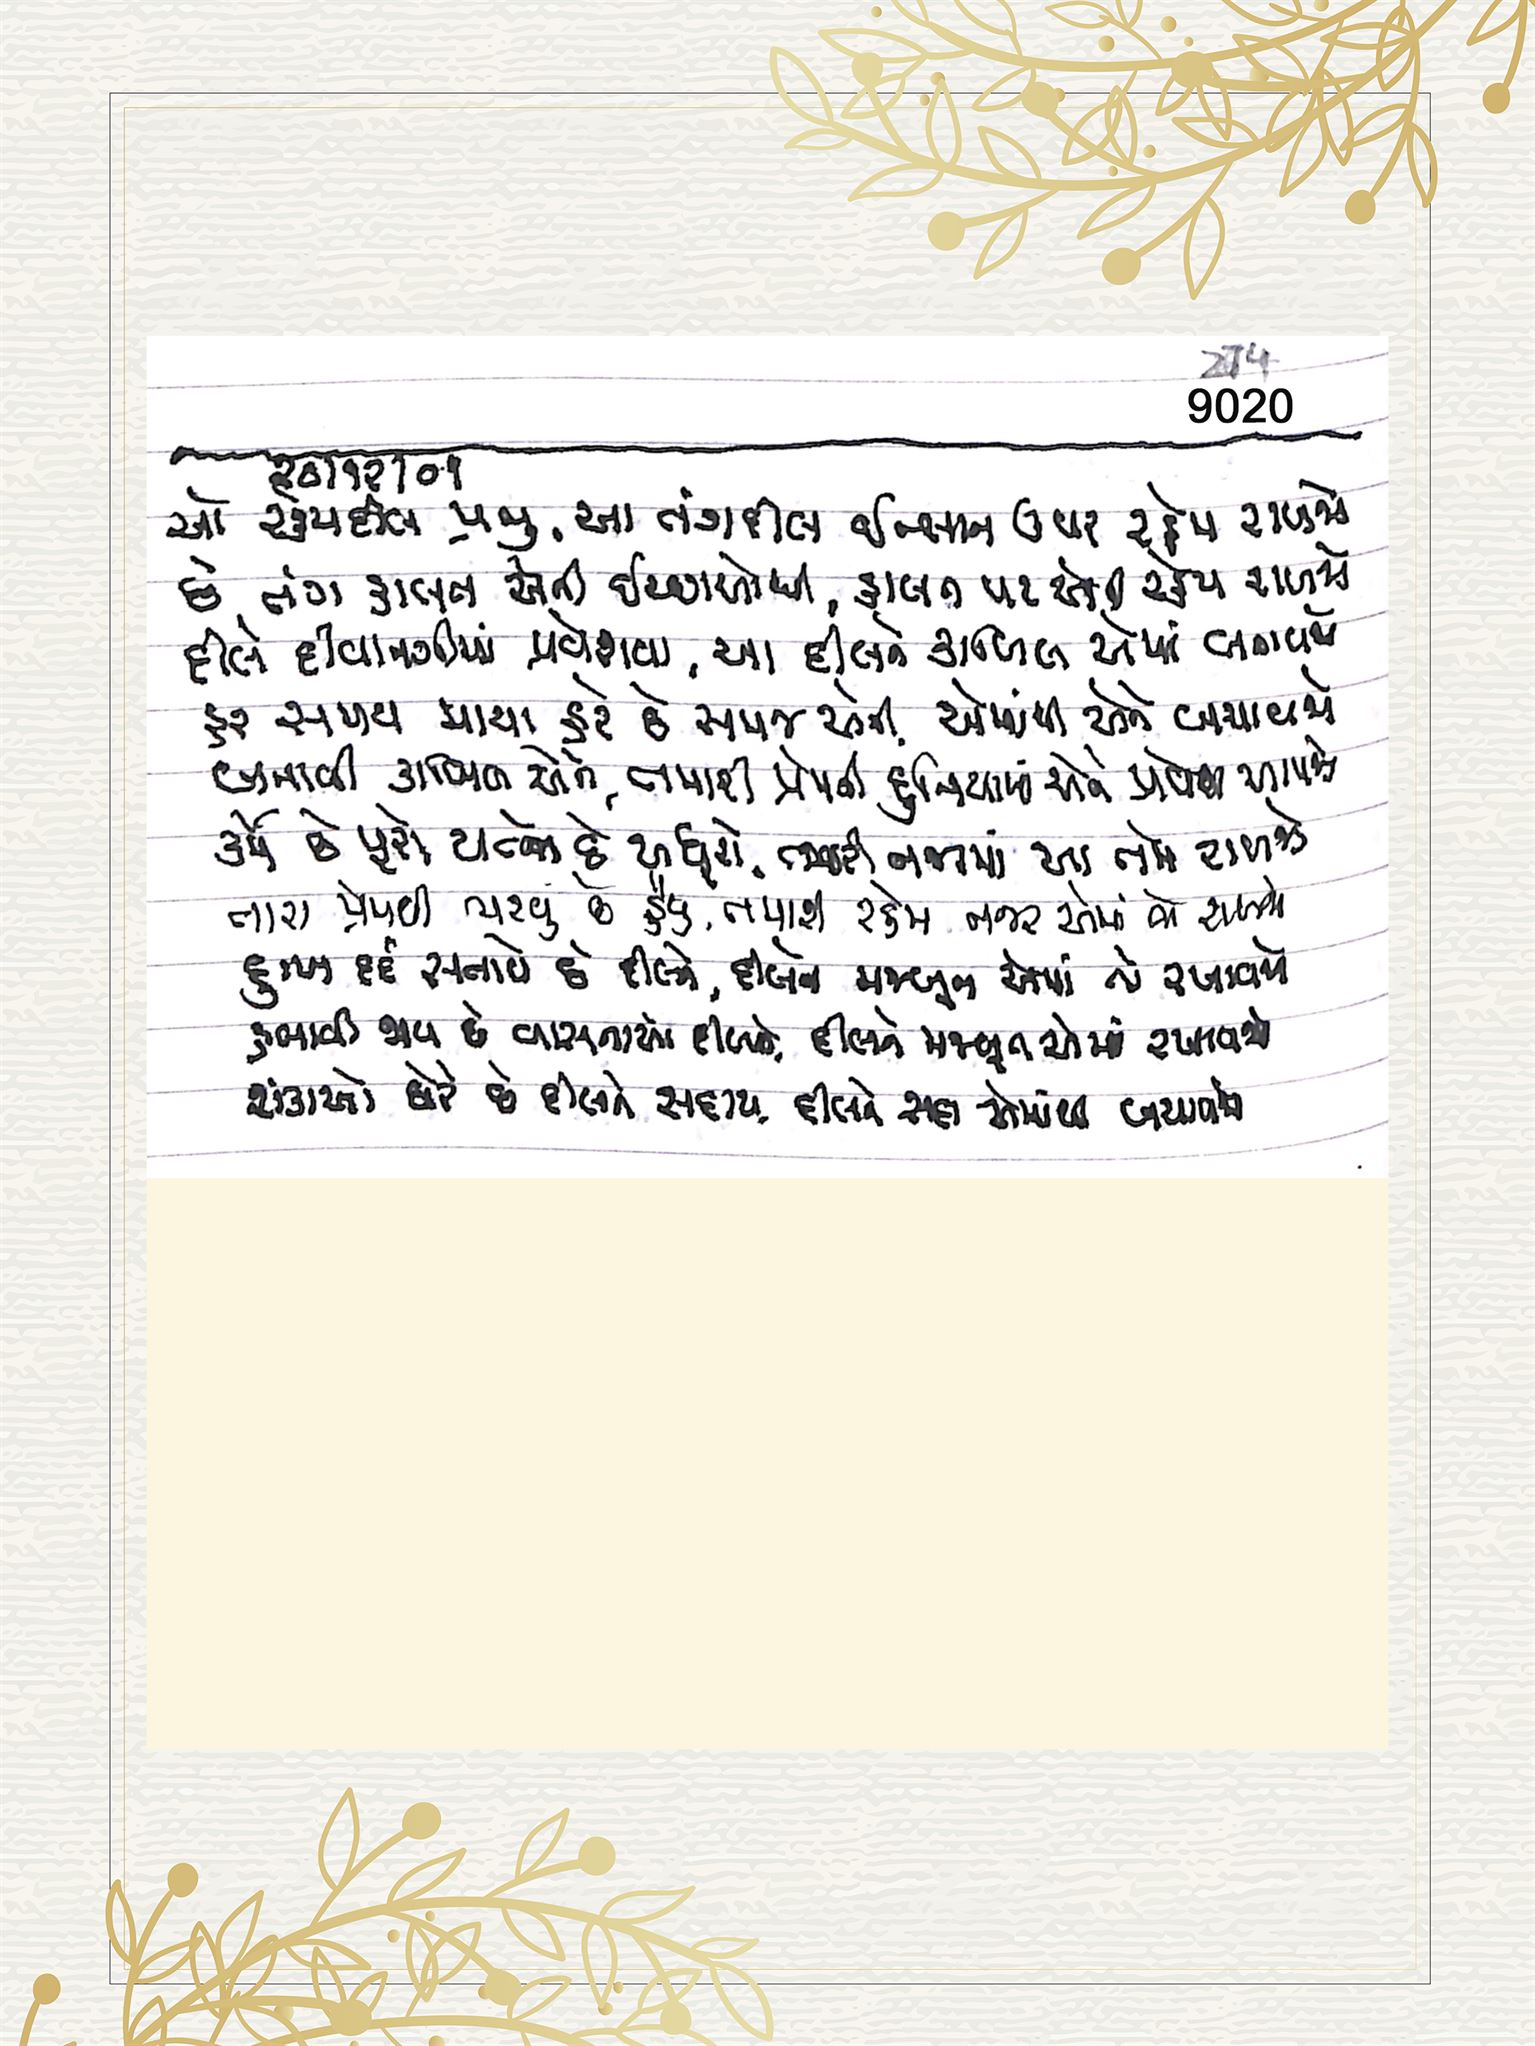 274
9020
૨૦/૧૨/૦૧
ઓ રહેમદીલ પ્રભુ, આ તંગદીલ ઈન્સાન ઉપર રહેમ રાખજો
છે તંગ હાલત એની ઈચ્છાઓથી, હાલત પર એની રહેમ રાખજો
દીલે દીવાનગીમાં પ્રવેશવા, આ દીલને કાબિલ એમાં બનાવજો
હર સમય માયા હરે છે સમજ એની, એમાંથી એને બચાવજો
બનાવી કાબિલ એને, તમારી પ્રેમની દુનિયામાં એને પ્રવેશ આપજો
કર્મે છે પૂરો યત્ને છે અધૂરો, તમારી નજરમાં આ તમે રાખજો
તારા પ્રેમથી ભરવું છે હૈયું, તમારી રહેમ નજર એમાં તો રાખજો
દુઃખ દર્દ સતાવે છે દીલને, દીલને મજબૂત એમાં તો રખાવજો
હલાવી જાય છે વાસનાઓ દીલને, દીલને મજબૂત એમાં રખાવજો
શંકાઓ ઘેરે છે દીલને સદાય, દીલને સદા એમાંથી બચાવજો